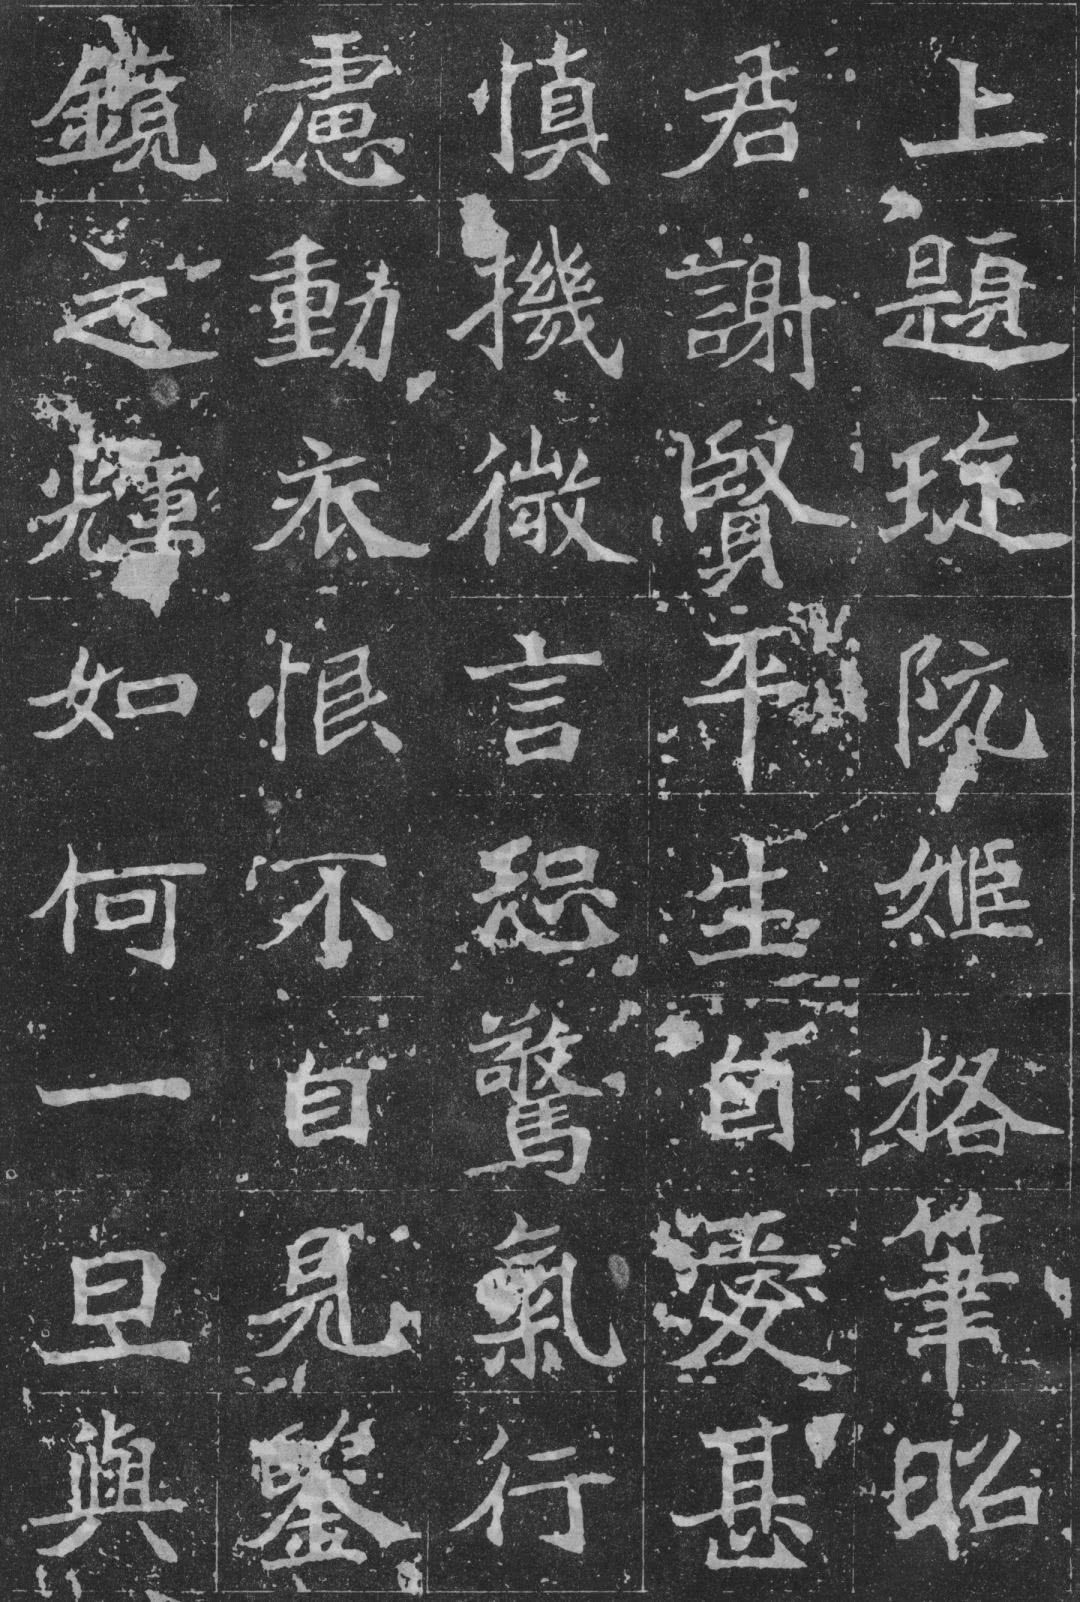 上題琁阮姬格筆昭
君謝賢平生自愛甚
慎機微言恐驚氣行
慮動衣恨不自見鑒
鏡之輝如何一旦與